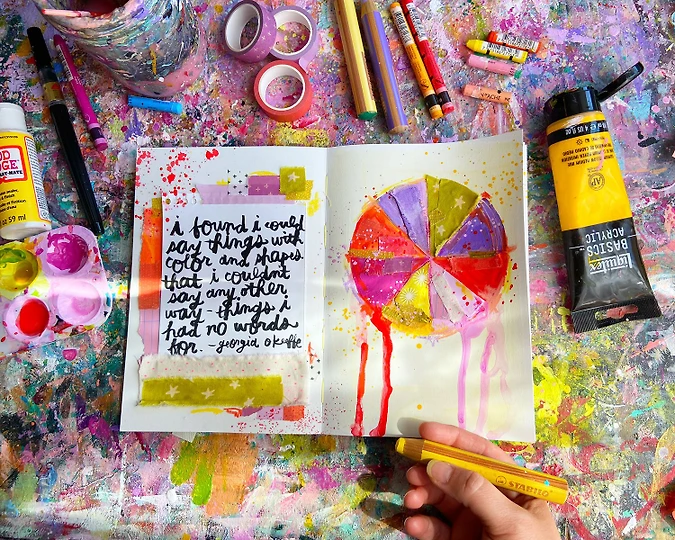 i found i could
say things with
color and shapes
that i couldn't
say any other
way - things i
had no words
for. - georgia o'keeffe
Liquitex
BASICS
ACRYLIC
AP
STABILO
59 ml